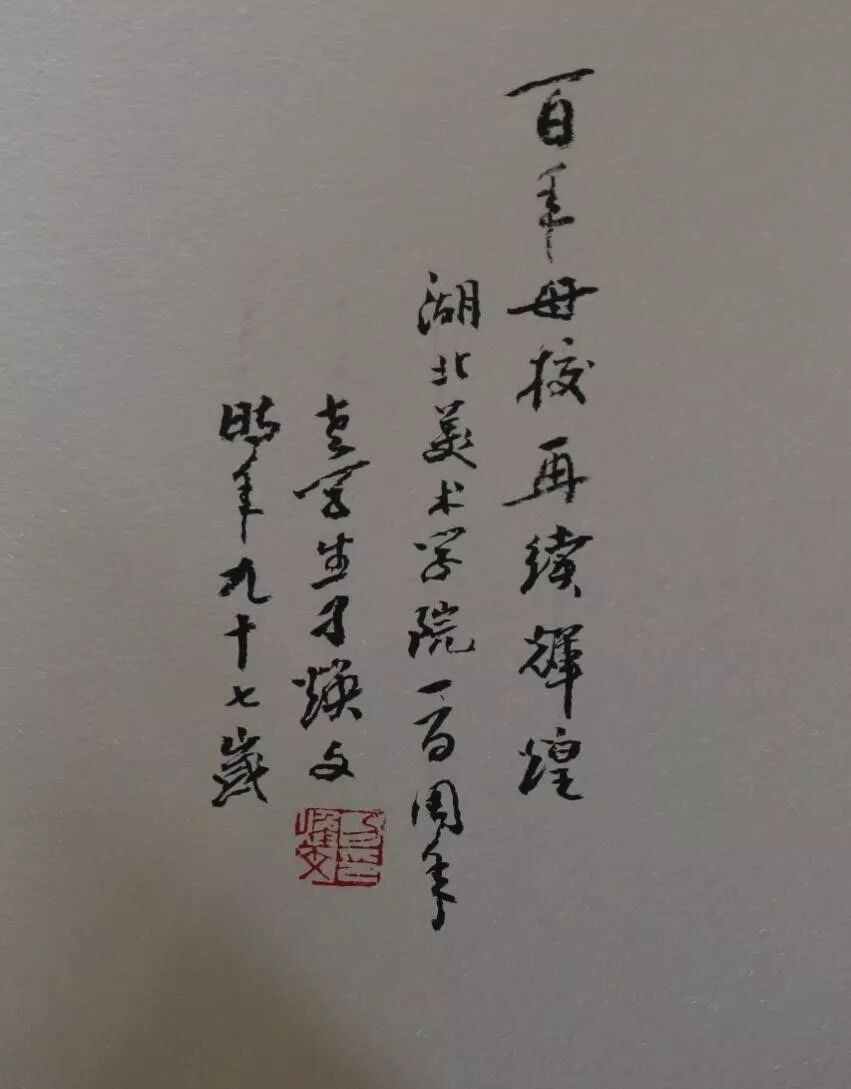 百年母校再续輝煌
湖北美术学院一百周年
老学生刁焕文
時年九十七歲